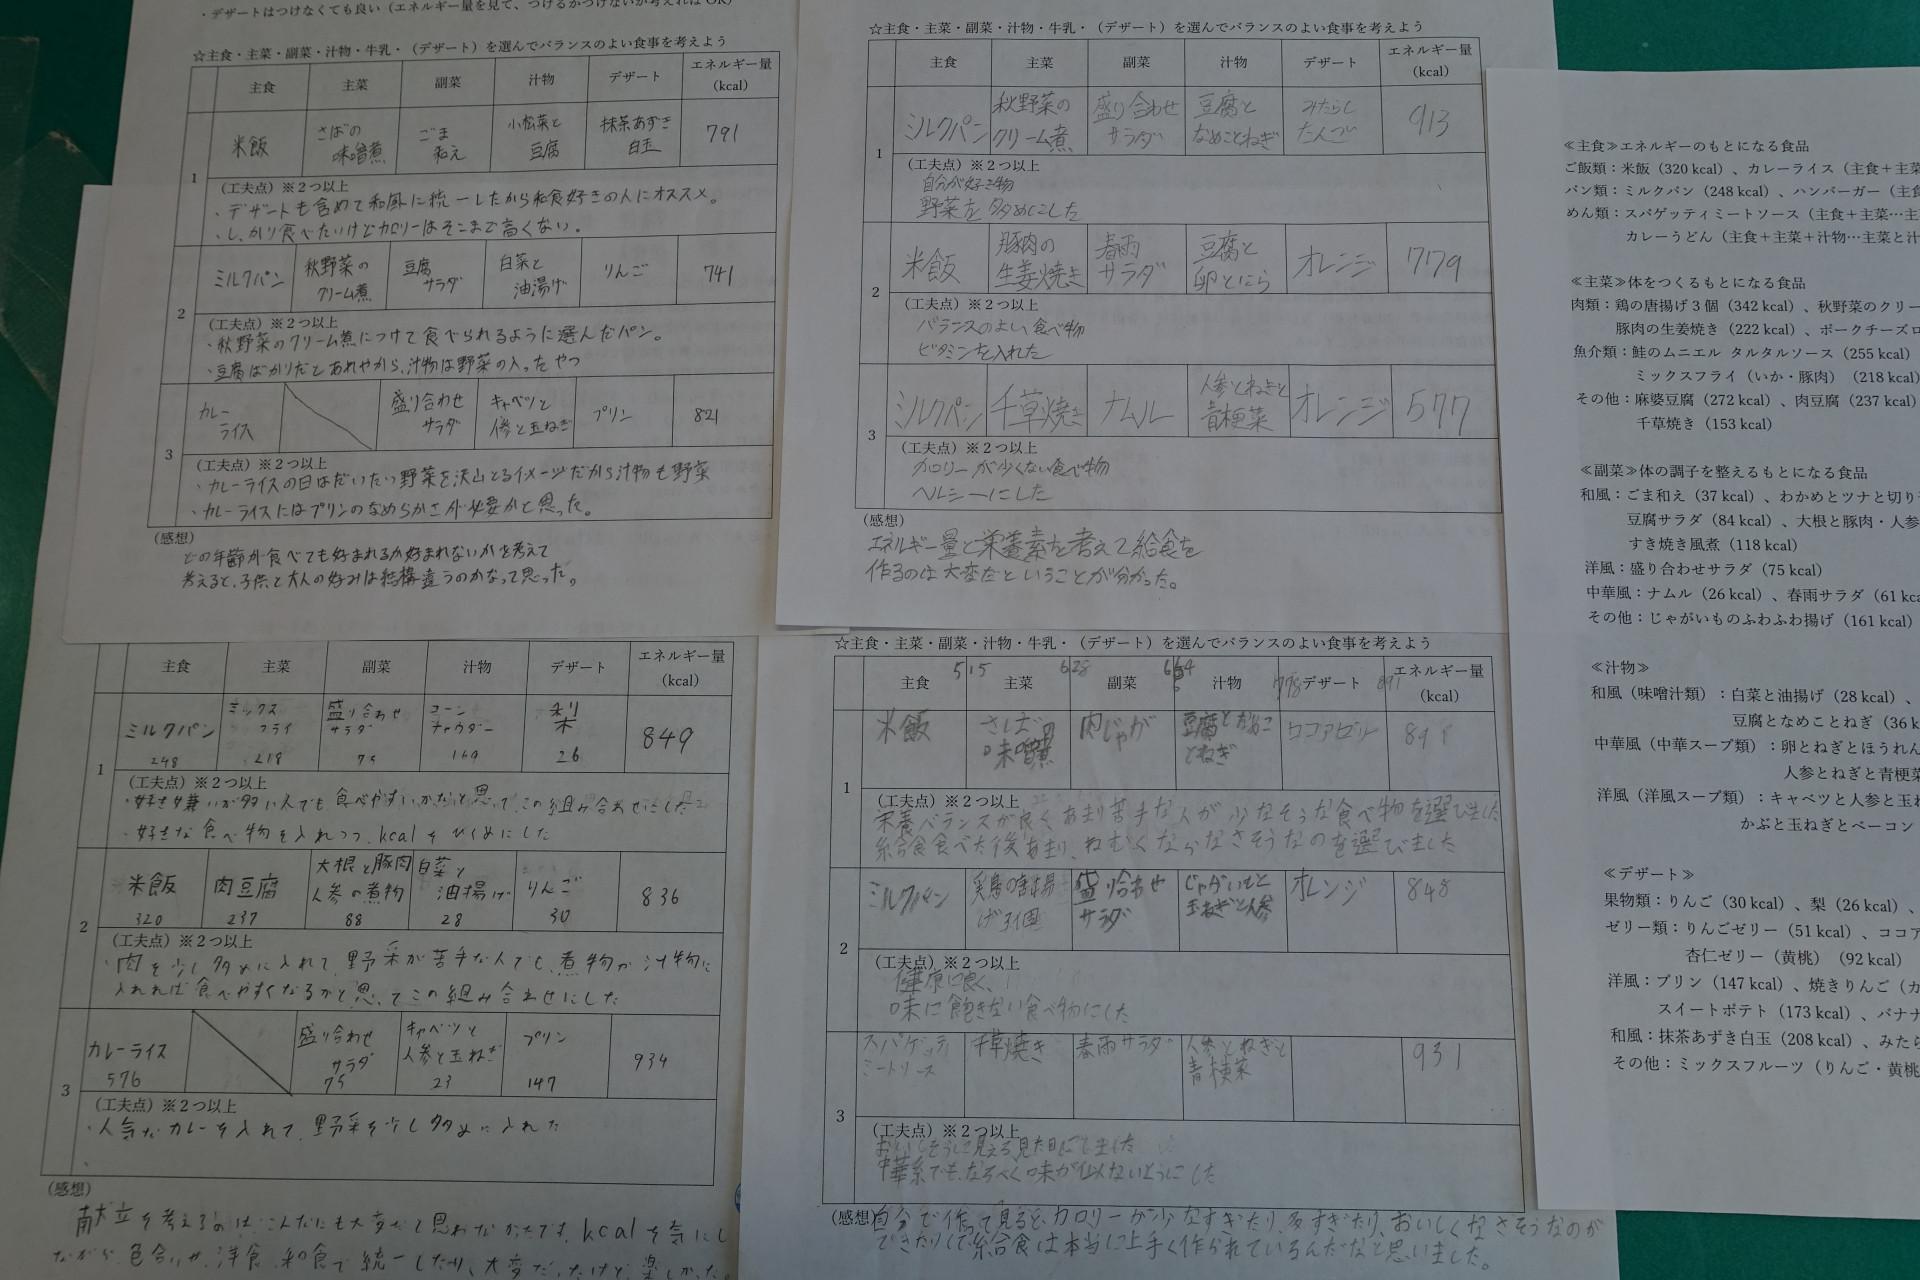 ・デザートはつけなくても良い（エネルギー量を見て、つけるかつけないか考えればOK）
☆主食・主菜・副菜・汁物・牛乳・（デザート）を選んでバランスのよい食事を考えよう
主食 主菜 副菜 汁物 デザート エネルギー量（kcal）
1 米飯 さばの味噌煮 ごま和え 小松菜と豆腐 抹茶あずき白玉 791
（工夫点）※２つ以上
・デザートも含めて和風に統一したから和食好きの人にオススメ。
・しっかり食べたいけどカロリーはそこまで高くない。
2 ミルクパン 秋野菜のクリーム煮 豆腐サラダ 白菜と油湯げ りんご 741
（工夫点）※２つ以上
・秋野菜のクリーム煮につけて食べられるように選んだパン。
・豆腐ばかりだとあれやから、汁物は野菜の入ったやつ
3 カレーライス 盛り合わせサラダ キャベツと人参と玉ねぎ プリン 821
（工夫点）※２つ以上
・カレーライスの日はだいたい野菜を沢山とるイメージだから汁物も野菜
・カレーライスにはプリンのなめらかさが必要かと思った。
（感想）
どの年齢が食べても好まれるか好まれないかを考えて
考えると、子供と大人の好みは結構違うのかなって思った。
☆主食・主菜・副菜・汁物・牛乳・（デザート）を選んでバランスのよい食事を考えよう
主食 主菜 副菜 汁物 デザート エネルギー量（kcal）
1 ミルクパン 秋野菜のクリーム煮 盛り合わせサラダ 豆腐となめことねぎ みたらしだんご 913
（工夫点）※２つ以上
自分が好き物
野菜を多めにした
2 米飯 豚肉の生姜焼き 春雨サラダ 豆腐と卵とにら オレンジ 779
（工夫点）※２つ以上
バランスのよい食べ物
ビタミンを入れた
3 ミルクパン 千草焼き ナムル 人参とねぎと青梗菜 オレンジ 577
（工夫点）※２つ以上
カロリーが少くない食べ物
ヘルシーにした
（感想）
エネルギー量と栄養素を考えて給食を
作るのは大変だということが分かった。
主食 主菜 副菜 汁物 デザート エネルギー量（kcal）
1 ミルクパン 248 ミックスフライ 218 盛り合わせサラダ 75 コーンチャウダー 梨 26 849
（工夫点）※２つ以上
・好き嫌いが多い人でも食べやすいかなと思って、この組み合わせにした
・好きな食べ物を入れつつ、kcalをひくめにした
2 米飯 320 肉豆腐 237 大根と豚肉人参の煮物 88 白菜と油揚げ 28 りんご 30 836
（工夫点）※２つ以上
・肉を少し多めに入れて、野菜が苦手な人でも、煮物か汁物に
入れれば食べやすくなるかと思ってこの組み合わせにした
3 カレーライス 576 盛り合わせサラダ 75 キャベツと人参と玉ねぎ 23 プリン 147 934
（工夫点）※２つ以上
・人気なカレーを入れて、野菜を少し多めに入れた
（感想）
献立を考えるのはこんなにも大変だって思わなかったです。kcalを気にし
ながら、色合いや、洋食、和食で統一したり、大変だったけど、楽しかった。
☆主食・主菜・副菜・汁物・牛乳・（デザート）を選んでバランスのよい食事を考えよう
515 628 664
主食 主菜 副菜 汁物 デザート エネルギー量（kcal）
1 米飯 さばの味噌煮 肉じゃが 豆腐となめことねぎ ココアゼリー
（工夫点）※２つ以上
栄養バランスが良くあまり苦手な人が少なそうな食べ物を選びました
給食食べた後あまり、ねむくならなさそうなのを選びました
2 ミルクパン 鶏の唐揚げ3個 盛り合わせサラダ じゃがいもと玉ねぎと人参 オレンジ 848
（工夫点）※２つ以上
健康に良く、
味に飽きない食べ物にした
3 スパゲッティミートソース 千草焼き 春雨サラダ 人参とねぎと青梗菜 931
（工夫点）※２つ以上
おいしそうに見える見た目にしました
中華系でも、なるべく味が似ないようにした
（感想）自分で作って見ると、カロリーが少なすぎたり、多すぎたり、おいしくなさそうなのが
できたりして給食は本当に上手く作られているんだなと思いました。
≪主食≫エネルギーのもとになる食品
ご飯類：米飯（320 kcal）、カレーライス（主食＋主菜
パン類：ミルクパン（248 kcal）、ハンバーガー（主食
めん類：スパゲッティミートソース（主食＋主菜…主
カレーうどん（主食＋主菜＋汁物…主菜と汁
≪主菜≫体をつくるもとになる食品
肉類：鶏の唐揚げ３個（342 kcal）、秋野菜のクリー
豚肉の生姜焼き（222 kcal）、ポークチーズロ
魚介類：鮭のムニエル タルタルソース（255 kcal）
ミックスフライ（いか・豚肉）（218 kcal）
その他：麻婆豆腐（272 kcal）、肉豆腐（237 kcal）
千草焼き（153 kcal）
≪副菜≫体の調子を整えるもとになる食品
和風：ごま和え（37 kcal）、わかめとツナと切り
豆腐サラダ（84 kcal）、大根と豚肉・人参
すき焼き風煮（118 kcal）
洋風：盛り合わせサラダ（75 kcal）
中華風：ナムル（26 kcal）、春雨サラダ（61 kca
その他：じゃがいものふわふわ揚げ（161 kcal）
≪汁物≫
和風（味噌汁類）：白菜と油揚げ（28 kcal）、
豆腐となめことねぎ（36 k
中華風（中華スープ類）：卵とねぎとほうれん
人参とねぎと青梗菜
洋風（洋風スープ類）：キャベツと人参と玉ね
かぶと玉ねぎとベーコン
≪デザート≫
果物類：りんご（30 kcal）、梨（26 kcal）、
ゼリー類：りんごゼリー（51 kcal）、ココア
杏仁ゼリー（黄桃）（92 kcal）
洋風：プリン（147 kcal）、焼きりんご（カ
スイートポテト（173 kcal）、バナナ
和風：抹茶あずき白玉（208 kcal）、みたら
その他：ミックスフルーツ（りんご・黄桃